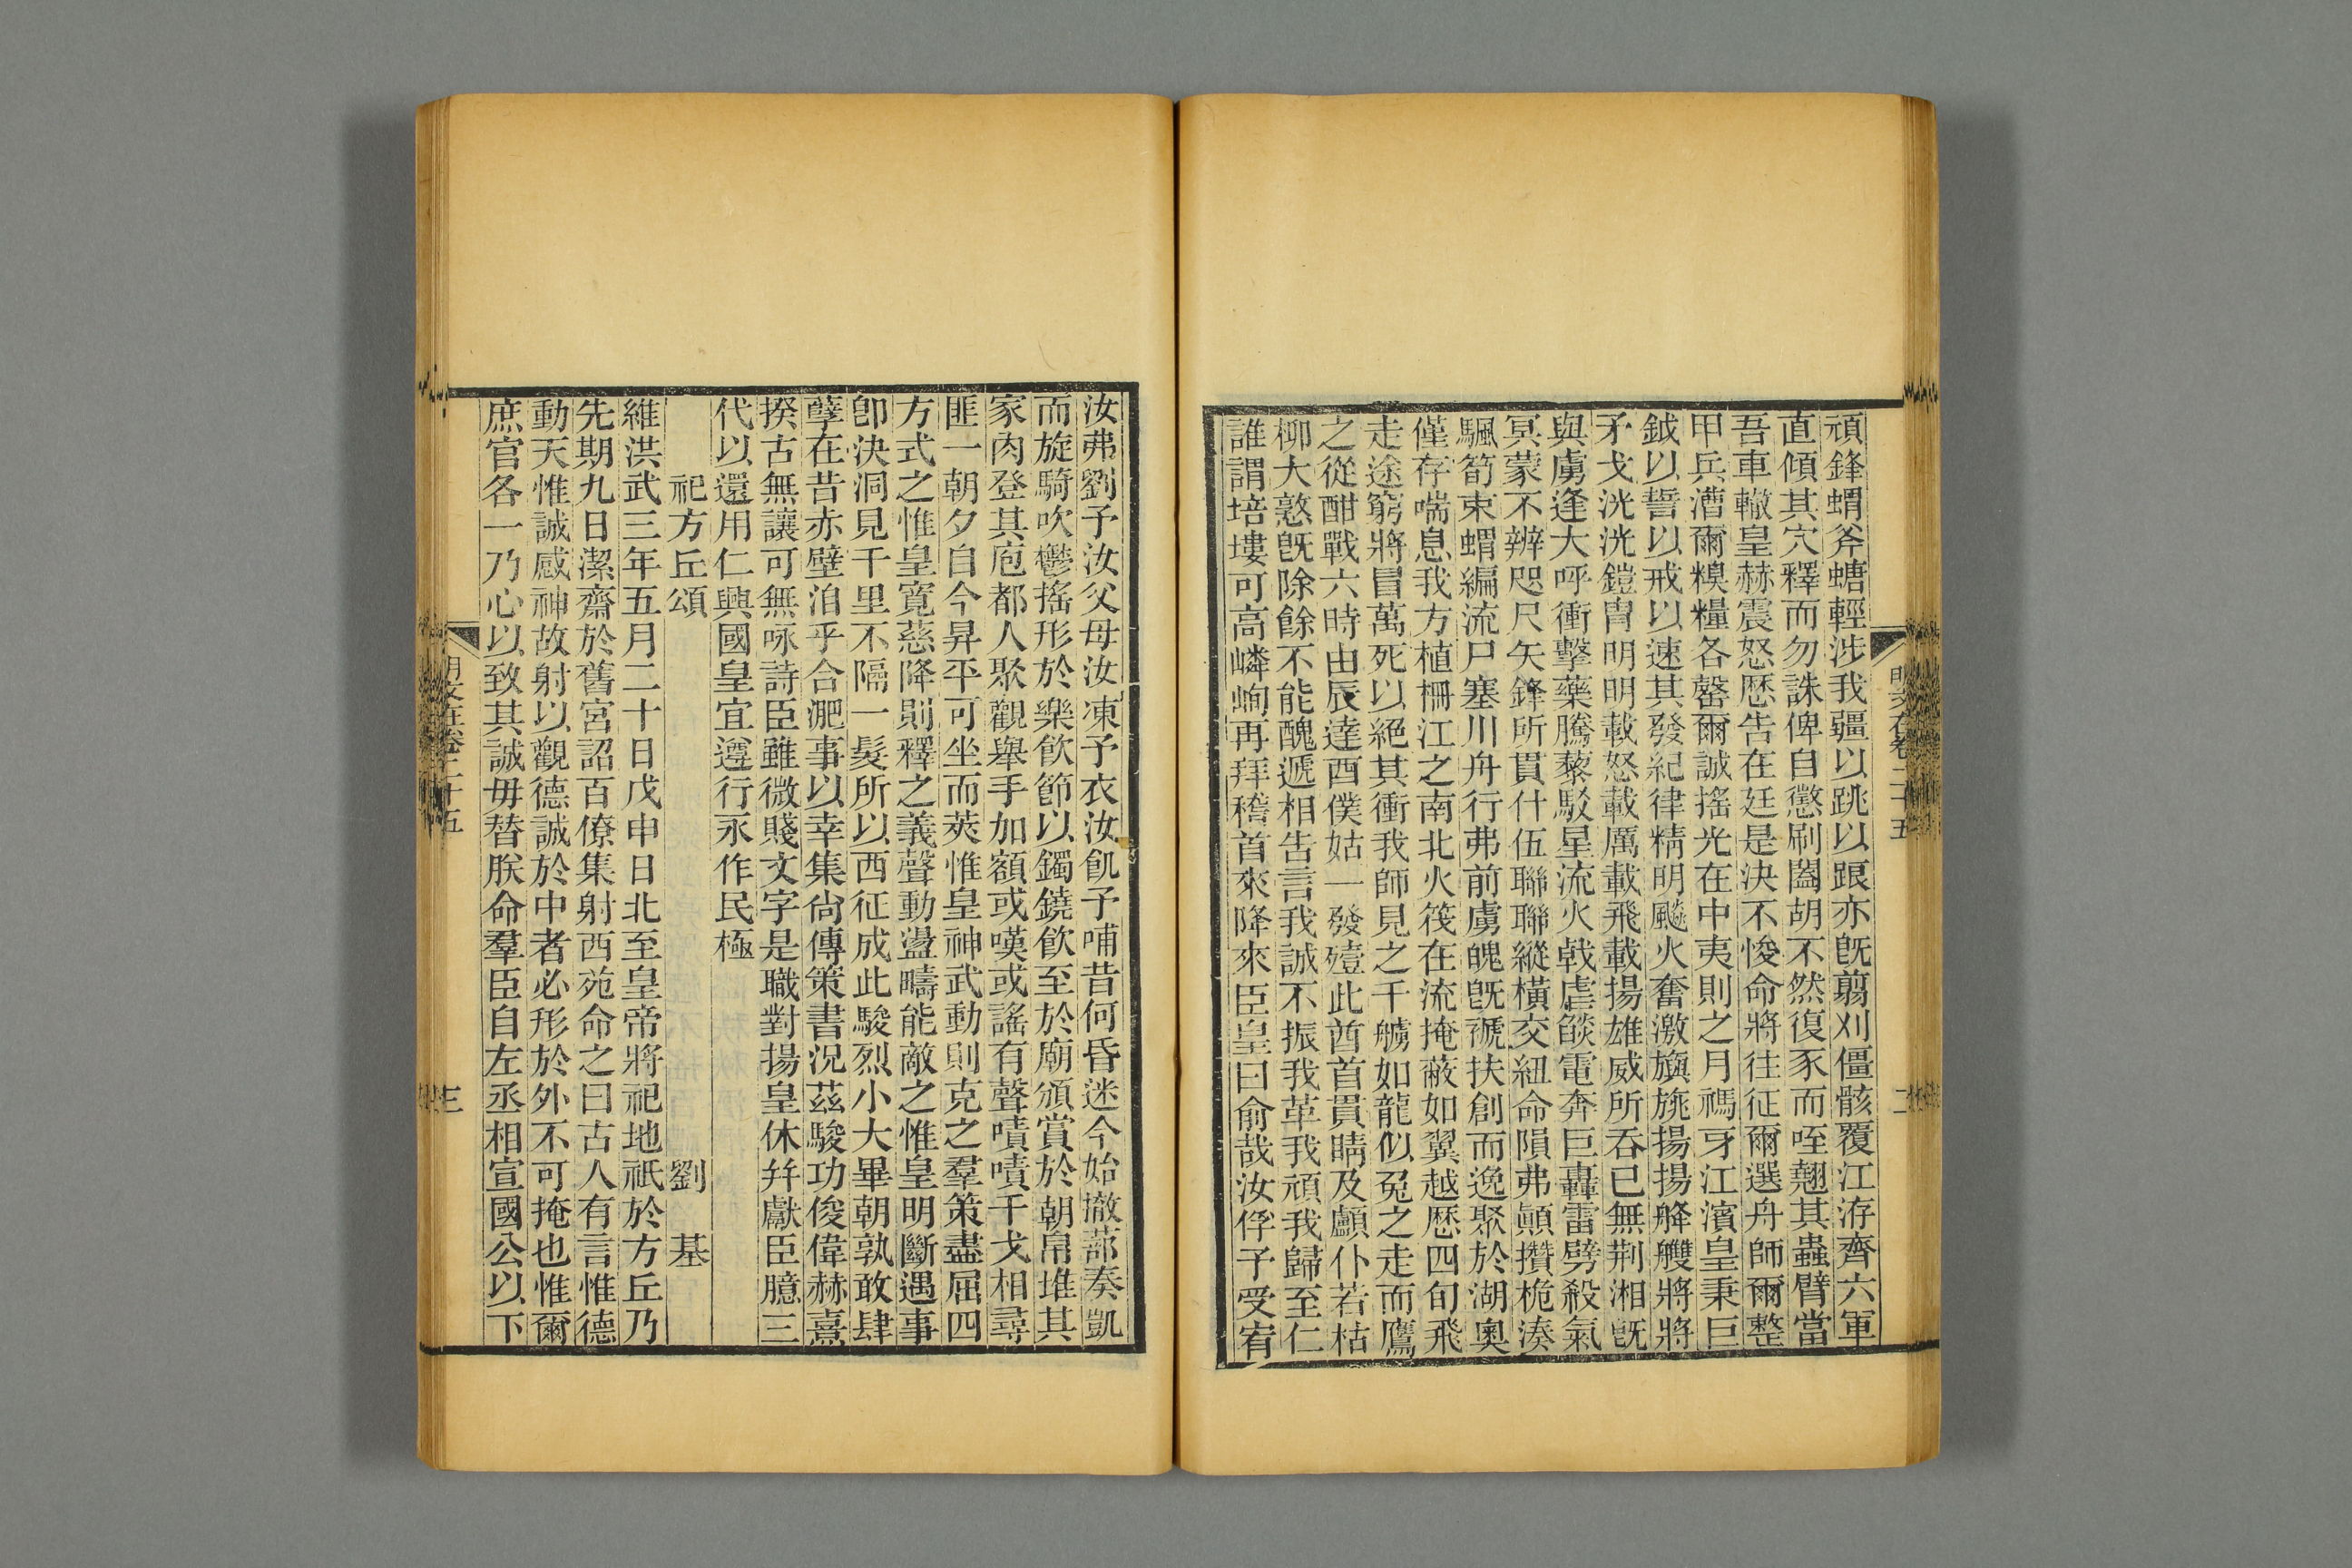 頑鋒蝟斧螗輕涉我疆以跳以踉亦旣翦刈僵骸覆江洊齊六軍
直傾其穴釋而勿誅俾自懲刷闔胡不然復豕而咥翹其蟲臂當
吾車轍皇赫震怒歷告在廷是決不悛命將往征爾選舟師爾整
甲兵漕爾糗糧各罄爾誠搖光在中夷則之月禡牙江濱皇秉巨
鉞以誓以戒以速其發紀律精明飈火奮激旟旐揚揚舽艭將將
矛戈洸洸鎧冑明明載怒載厲載飛載揚雄威所吞已無荆湘旣
與虜逢大呼衝擊藥騰藜駁星流火戟虐燄電奔巨轟雷劈殺氣
冥蒙不辨咫尺矢鋒所貫什伍聯聯縱橫交紐命隕弗顚攢桅湊
颿笴束蝟編流尸塞川舟行弗前虜魄旣褫扶創而逸聚於湖奧
僅存喘息我方植柵江之南北火筏在流掩蔽如翼越歷四旬飛
走途窮將冒萬死以絕其衝我師見之千艣如龍似兔之走而鷹
之從酣戰六時由辰達酉僕姑一發殪此酋首貫睛及顱仆若枯
柳大憝旣除餘不能醜遞相告言我誠不振我革我頑我歸至仁
誰謂培塿可高嶙峋再拜稽首來降來臣皇曰俞哉汝俘予受宥
明文在卷二十五
二
汝弗劉予汝父母汝凍予衣汝飢予哺昔何昏迷今始撤蔀奏凱
而旋騎吹鬱搖形於樂飮節以鐲鐃飮至於廟頒賞於朝帛堆其
家肉登其庖都人聚觀舉手加額或嘆或謠有聲嘖嘖千戈相尋
匪一朝夕自今昇平可坐而莢惟皇神武動則克之羣策盡屈四
方式之惟皇寬慈降則釋之義聲動盪疇能敵之惟皇明斷遇事
卽決洞見千里不隔一髮所以西征成此駿烈小大畢朝孰敢肆
孽在昔赤壁洎乎合淝事以幸集尙傳策書況茲駿功俊偉赫熹
揆古無讓可無咏詩臣雖微賤文字是職對揚皇休幷獻臣臆三
代以還用仁興國皇宜遵行永作民極
祀方丘頌　劉　基
維洪武三年五月二十日戊申日北至皇帝將祀地祇於方丘乃
先期九日潔齋於舊宮詔百僚集射西苑命之曰古人有言惟德
動天惟誠感神故射以觀德誠於中者必形於外不可掩也惟爾
庶官各一乃心以致其誠毋替朕命羣臣自左丞相宣國公以下
明文在卷二十五
三